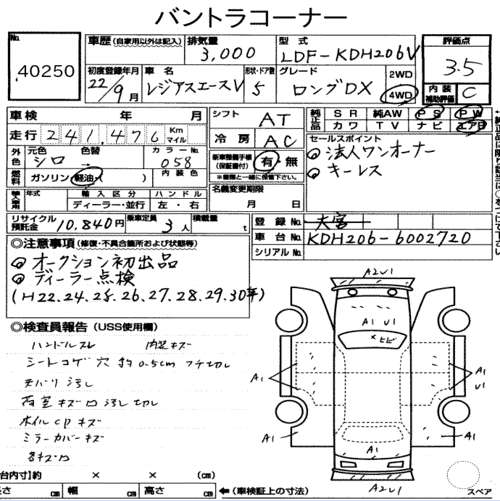 バントラコーナー
No. 40250
車歴 (自家用以外は記入)
排気量 3,000
型式 LDF-KDH206V
評価点 3.5
初度登録年月 22/9月
車名 レジアスエースV
形状・ドア数 5
グレード ロングDX
2WD
4WD
内装補助評価 C
車検 年 月
走行 241,476 Km マイル
シフト AT
純正品 SR 純AW PS PW
カワ TV ナビ エアB
外色 元色 シロ 色替 カラーNo. 058
冷房 AC
セールスポイント
◎法人ワンオーナー
◎キーレス
燃料 ガソリン・軽油・( ) 内装色
新車整備手帳(保証書付) 有・無
輸入車 年式 輸入区分 ハンドル
ディーラー・並行 左・右
名義変更期限 月 日
リサイクル預託金 10,840円 乗車定員 3人 積載量 t
登録No. 大宮
車台No. KDH206-6002720
シリアルNo.
◎注意事項 (修復・不具合箇所および状態等)
◎オークション初出品
◎ディーラー点検
(H22.24.28.26.27.28.29.30年)
◎検査員報告 (USS使用欄)
ハンドルスレ 内装キズ
シートコゲ穴 約0.5cm フチ切レ
ミラーカバーキズ
A2V1
A1 V1
ヒビ
A1
A1
A1
A1
A2V1
スペア
荷台内寸)約 × × (cm)
長さ cm 幅 cm 高さ cm ←(車検証上の寸法)